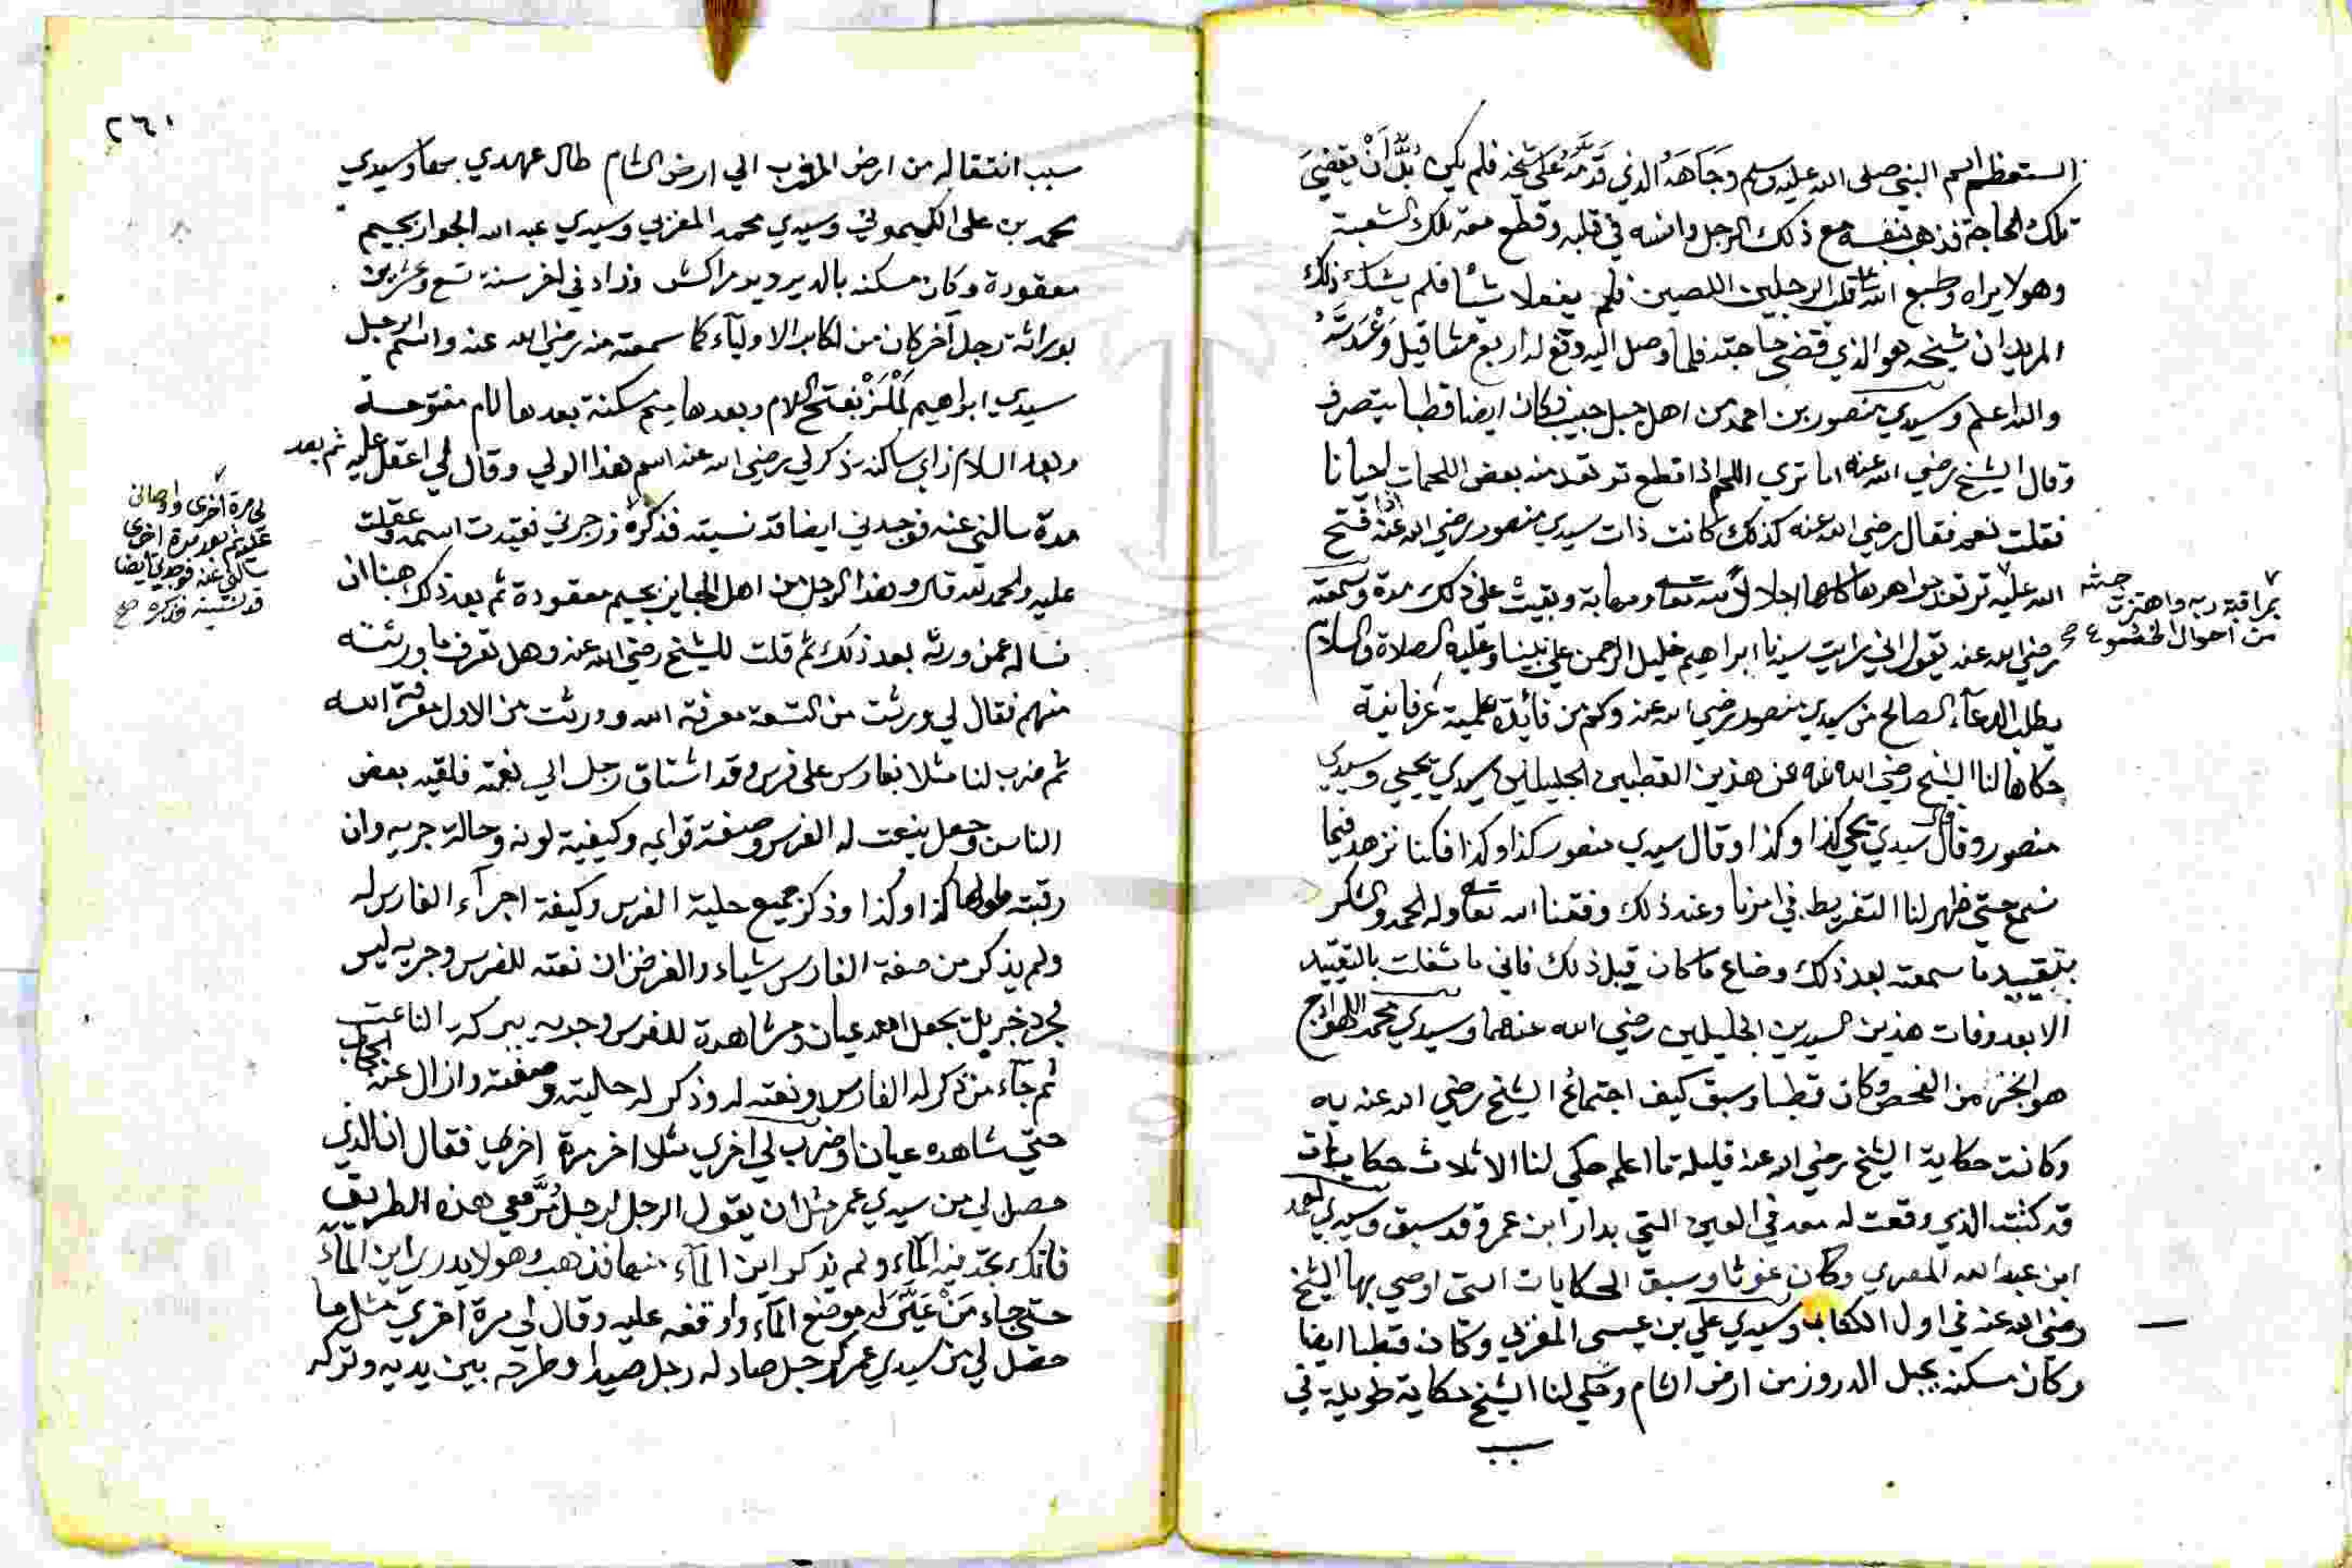 استعظم اسم النبي صلى الله عليه وسلم وجاهه الذي قدمه على شيخه فلم يكن بد أن يقضي
تلك الحاجة فذهب بنفسه مع ذلك الرجل وانسه في قلبه وقطع معه تلك الشعبة
وهو لا يراه وطبع الله على قلب الرجلين اللصين فلم يفعلا شيأ فلم يشك ذلك
المريد ان شيخه هو الذي قضى حاجته فلما وصل اليه دفع له اربع مثاقيل
والله اعلم وسيدي منصور بن احمد من اهل جبل حبيب وكان ايضا قطبا يتصرف
وقال الشيخ رضي الله عنه اما تري اللحم اذا قطع ترتعد منه بعض اللحمات احيانا
فقلت نعم فقال رضي الله عنه كذلك كانت ذات سيدي منصور رضي الله عنه اذا فتح
الله عليه ترتعد جواهرها كلها اجلالا لله تعالى ومهابة وبقيت على ذلك مدة وسمعته
بمراقبة ربه واهتزت جثته
من احوال الخشوع صح
رضي الله عنه يقول اني رايت سيدنا ابراهيم خليل الرحمن على نبينا وعليه الصلاة والسلام
يطلب الدعآء الصالح من سيدي منصور رضي الله عنه وكم من فائدة علمية عرفانية
حكاها لنا الشيخ رضي الله عنه عن هذين القطبين الجليلين سيدي يحيي وسيدي
منصور وقال قال سيدي يحيى كذا وكذا وقال سيدي منصور كذا وكذا فكنا نزهد فيما
نسمع حتى ظهر لنا التفريط في امرنا وعند ذلك وفقنا الله تعالى وله الحمد والشكر
بتقييد ما سمعته بعد ذلك وضاع ما كان قبل ذلك فاني ما شغلت بالتقييد
الا بعد وفات هذين السيدين الجليلين رضي الله عنهما وسيدي محمد اللهواج
هو الخز من الفحص وكان قطبا وسبق كيف اجتماع الشيخ رضي الله عنه به
وكانت حكاية الشيخ رضي الله عنه قليلة ما اعلم حكي لنا الا ثلاث حكايات
قد كتبت الذي وقعت له معه في العين التي بدار ابن عمرو قد سبق وسيدي احمد
ابن عبد الله المصري وكان غوثا وسبق الحكايات التي اوصي بها الشيخ
رضي الله عنه في اول الكتاب وسيدي علي بن عيسى المغربي وكان قطبا ايضا
وكان مسكنه بجبل الدروز من ارض الشام وحكي لنا الشيخ حكاية طويلة في
سبب
٢٦١
سبب انتقاله من ارض المغرب الي ارض الشام طال عهدي بها وسيدي
محمد بن على الكيموني وسيدي محمد المغربي وسيدي عبد الله الجواز بجيم
معقودة وكان مسكنه بالدير دير مراكش وزاد في اخر سنة تسع وعشرين
بوراثة رجل آخر كان من اكابر الاولياء كما سمعته منه رضي الله عنه واسم الرجل
سيدي ابراهيم لملز بفتح اللام وبعدها ميم مسكنة بعدها لام مفتوحة
وبعد اللام زاي ساكنة ذكر لي رضي الله عنه اسم هذا الولي وقال لي اعقل عليه ثم بعد
مدة سالني عنه فوجدني ايضا قد نسيته فذكره وزجرني فقيدت اسمه وعقلت
لي مرة أخرى واوصاني
عليه ثم بعد مدة اخرى
سالني عنه فوجدني ايضا
قد نسيته فذكره صح
عليه والحمد لله قال وهذا الرجل من اهل الجاين بجيم معقودة ثم بعد ذلك هبنا ان
نساله عمن ورثه بعد ذلك ثم قلت للشيخ رضي الله عنه وهل تعرف ما ورثته
منهم فقال لي ورثت من التسعة معرفة الله وورثت من الاول معرفة الله
ثم ضرب لنا مثلا بفارس على فرس وقد اشتاق رجل الي نعته فلقيه بعض
الناس وجعل ينعت له الفرس وصفة قوايمه وكيفية لونه وحالة جريه وان
رقبته طولها كذا وكذا وذكر جميع حلية الفرس وكيفة اجرآء الفارس له
ولم يذكر من صفة الفارس شياء والغرض ان نعته للفرس وجريه ليس
لمجرد خبر بل بجعل امد عيان ومشاهدة للفرس وجريه ببركة الناعت
ثم جآء من ذكر له الفارس ونعته له وذكر له حليته وصفته وازال عنه الحجاب
حتي شاهده عيانا وضرب لي اخري مثلا اخر مرة اخري فقال ان الذي
حصل لي من سيدي عمر مثل ان يقول الرجل لرجل مر معي هذه الطريق
فانك تجد فيه المآء ولم يذكر اين المآء منها فذهب وهو لا يدري اين المآء
حتى جاء من عين له موضع المآء واوقفه عليه وقال لي مرة اخري مثل ما
حصل لي من سيدي عمر كرجل صاد له رجل صيدا وطرحه بين يديه وتركه